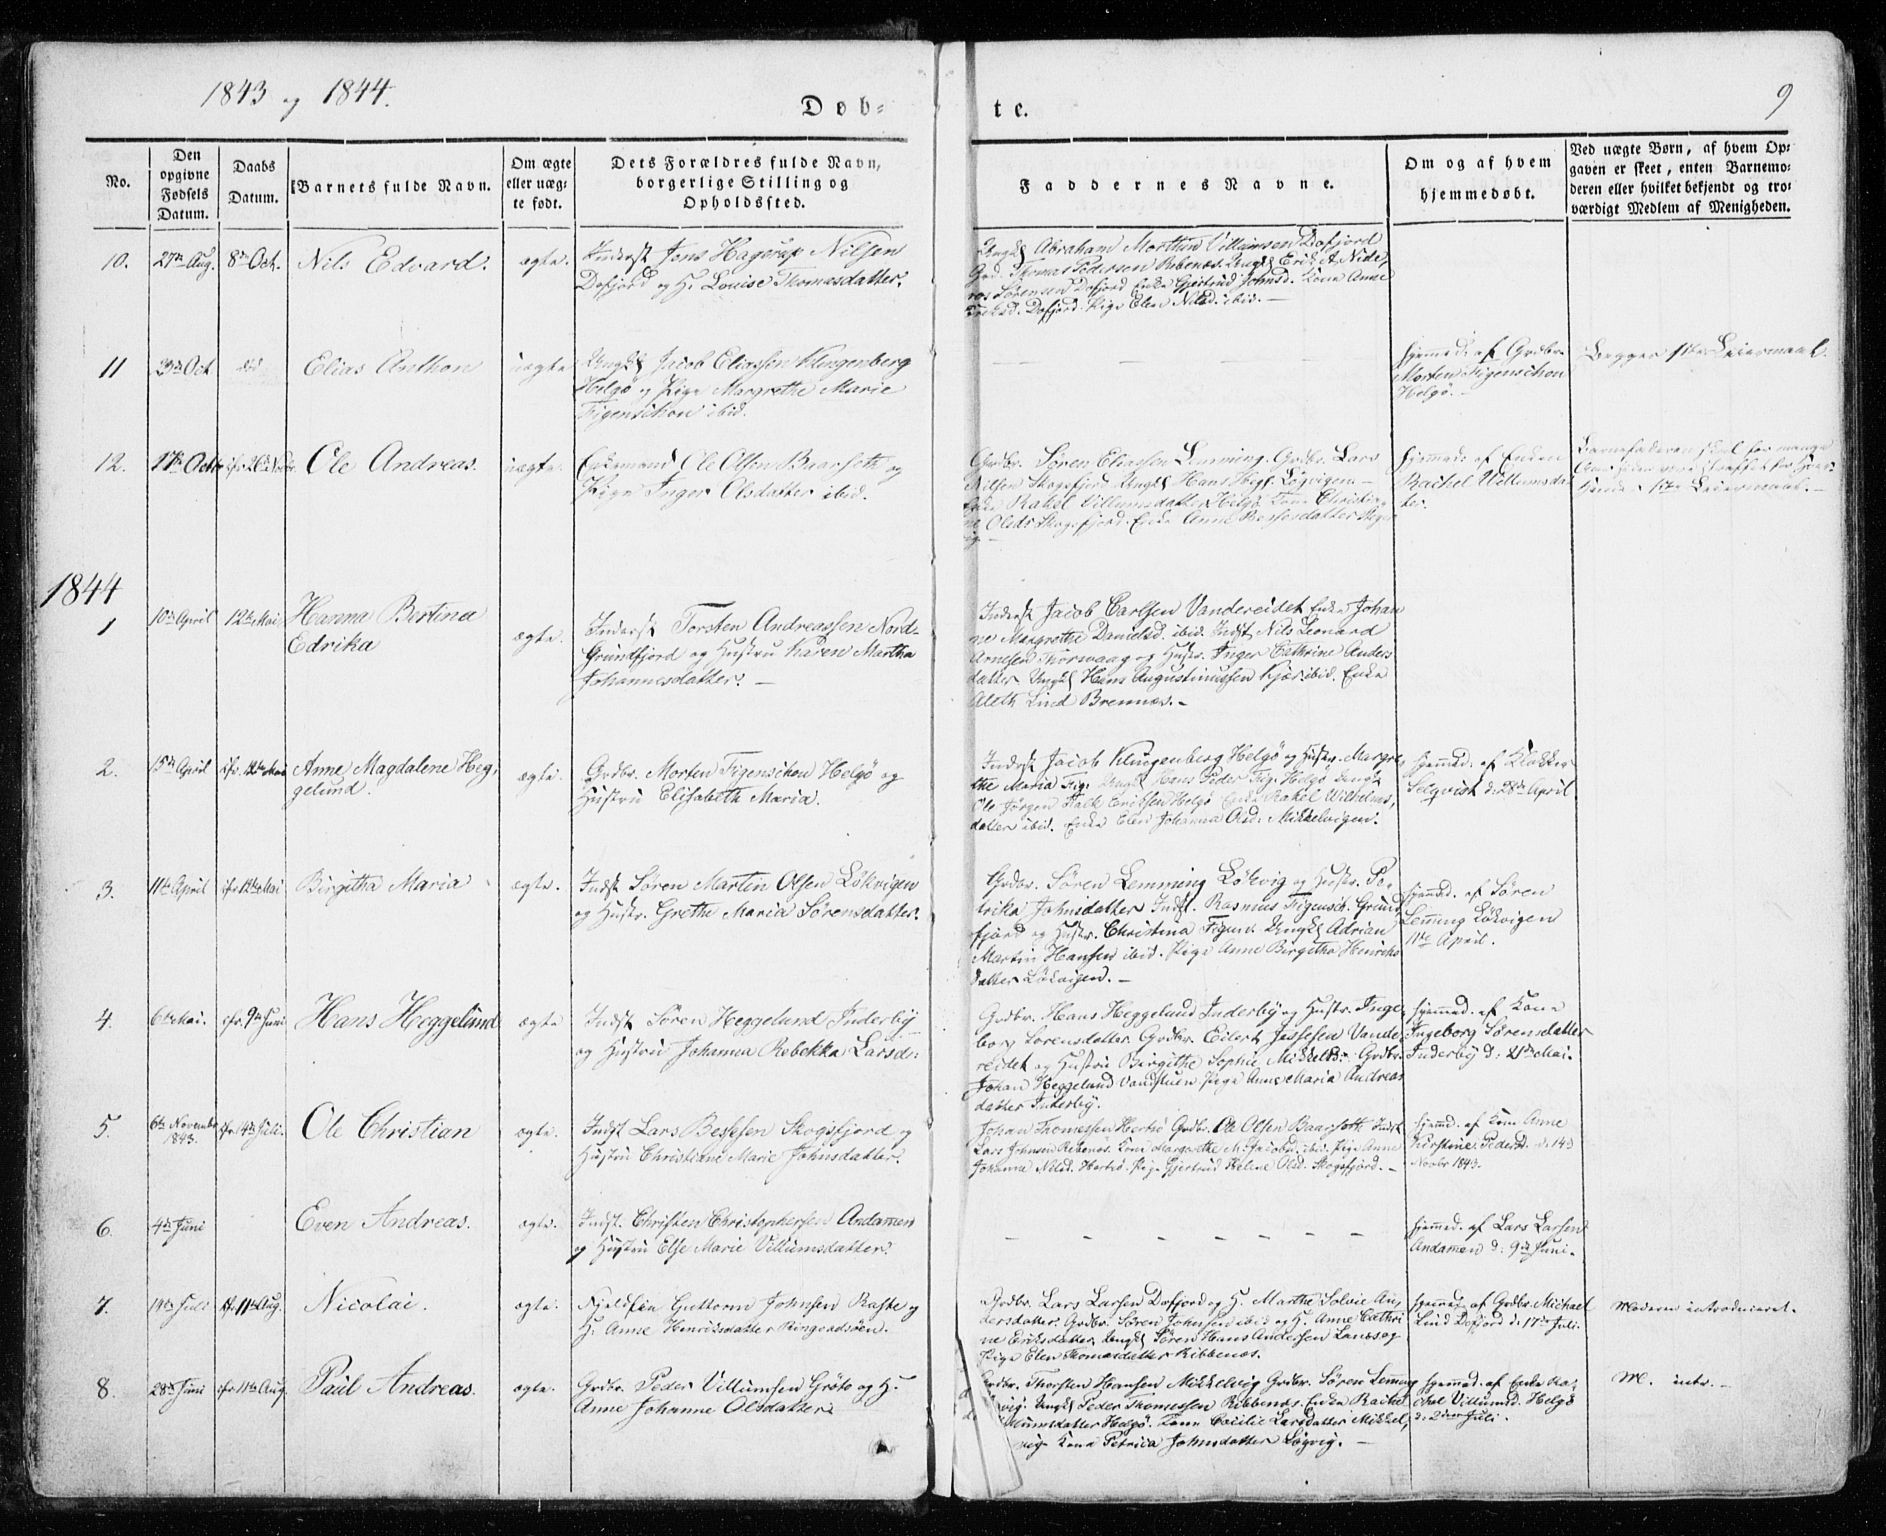 1843 og 1844.
Døb-
te.
9
No.
Den opgivne Fødsels Datum.
Daabs Datum.
Barnets fulde Navn.
Om ægte eller uægte født.
Dets Forældres fulde Navn, borgerlige Stilling og Opholdssted.
Faddernes Navne.
Om og af hvem hjemmedøbt.
Ved uægte Børn, af hvem Opgaven er skeet, enten Barnemoderen eller hvilket bekjendt og troværdigt Medlem af Menigheden.
10. 27de Aug. 8de Oct. Nils Edvard. ægte.
Inderst Jens Hagerup Nilsen
Dofjord og H. Louise Thomasdatter.
Ungk. Abraham Morthin Villumsen Dofjord
Gbr. Thomas Pedersen Rebenes. Ungk. Erik A. Nide,
ros Sørensen Dofjord Enke Gjertrud Johnsd. Kone Anne
Eriksd. Dofjord. Pige Elen Nilsd. ibid. —
11 3de Oct Elias Anthon uægte
Ungk. Jacob Eliassen Klingenberg
Helgø og Pige Margrethe Marie
Figenschou ibid.
hjemmed. af Grdbr.
Morten Figenschou
Helgø. —
Begges 1ste Leiermaal.
12. Ole Andreas. uægte.
Enkemand Ole Olsen Baarseth og
Pige Inger Olsdatter ibid.
Grdbr. Søren Eliassen Lemming. Grdbr. Lars
Nilsen Skogsfjord Ungk. Hans Hegg. Løgvigen —
Enke Rakel Villumsdatter Helgø Kone Christia-
ne Olsdr Skogsfjord. Enke Anne
hjemmed. af Enken
Rachel Villumsdat-
ter.
Barnefaderen skal for mange
1ste Leiermaal. —
1844
1 10de April 12te Mai Hanna Bertina
Edrika
ægte.
Inderst Torsten Andreassen Nord-
Grundfjord og Hustru Karen Martha
Johannesdatter. —
Inderst Jacob Carlsen Vandereidet Enke Johan
ne Margrethe Danielsd. ibid. Indst Nils Leonard
Arnesen Thorsvaag og Hustr. Inger Cathrine Anders
datter Ungk. Hans Augustinussen Kjær ibid. Enke
Aleth Lind Brennæs. —
2. 15de April cfr. 12te Mai Anne Magdalene Heg,
gelund.
ægte.
Grdbr. Morten Figenschou Helgø og
Hustru Elisabeth Maria.
Inderst Jacob Klingenberg Helgø og Hustr. Margre
the Maria Fig. Ungk. Hans Peder Fig. Helgø Ungk.
Ole Jørgen Falk Eriksen Helgø Enke Rakel Wilhelms,
datter ibid. Enke Elen Johanna Olsd. Mikkelvigen.
hjemmed. af Klokker
Selqvist d. 28de April
3. 11te April cfr. 12te Mai Birgitha Maria ægte.
Indst Søren Martin Olsen Løkvigen
og Hustr. Grethe Maria Sørensdatter.
Grdbr. Søren Lemming Løkvig og Hustr. Pe-
trika Johnsdatter Indst. Rasmus Figensch. Grund
fjord og Hustr. Christina Figens. Ungk. Adrian
Martin Hansen ibid. Pige Anne Birgitha Henriks
datter Løkvigen. —
hjemmed. af Søren
Lemming Løkvigen
11te April.
4. 6te Mai. cfr. 9de Juni Hans Heggelund ægte
Indst Søren Heggelund Inderby
og Hustru Johanna Rebekka Larsd.
Grdbr. Hans Heggelund Inderby og Hustr. Inge,
borg Sørensdatter. Grdbr. Eilert Jessesen Vande,
reidet og Hustru Birgithe Sophie Mikkelsd. Grdbr.
Johan Heggelund Vandstuen Pige Anne Maria Andreas
datter Inderby.
hjemmed. af Kone
Ingeborg Sørensdatter
Inderby d. 21de Mai.
5. 6te November
1843.
cfr. 14de Juli. Ole Christian ægte.
Indst Lars Bessesen Skogsfjord og
Hustru Christiane Marie Johnsdatter.
Johan Thomessen Hertsø Grdbr. Ole Olsen Baarseth Indst
Lars Johnsen Rebenes. Kone Margrethe M. Jacobsd. ibid. Pige Anne
Johanne Nilsd. Hertsø. Pige Gjertrud Helene Olsd. Skogsfjord. —
hjemmed. af Kone Anne
Kirstine Pedersd. d. 14d
Novbr 1843.
6. 4de Juni Even Andreas. ægte.
Indst. Christen Christophersen Andamen
og Hustru Else Marie Villumsdatter.
hjemmed. af Lars Larsen
Andamen d. 9de Juni.
7. 14de Juli cfr. 11te Aug. Nicolai. ægte.
Fjeldfin Guttorm Johnsen Raste og
H. Anne Henriksdatter Ringvadsøen.
Grdbr. Lars Larsen Dofjord og H. Marthe Solvie An,
dersdatter. Grdbr. Søren Johnsen ibid og H. Anne Cathri
ne Eriksdatter, Ungk. Søren Hans Andersen Lanes og
Pige Elen Thomasdatter Ribbenæs.
hjemmed. af Grdbr. Michael
Lind Dofjord d. 17de Juli.
Moderen introduceret.
8. 28de Juni cfr. 11te Aug. Paul Andreas. ægte.
Grdbr. Peder Villumsen Grøto og H.
Anne Johanne Olsdatter.
Grdbr. Thorsten Hansen Mikkelvig Grdbr. Søren Leming
vig. Ungk. Peder Thomessen Ribbenæs. Enke Rachel
Villumsdatter Helgø. Kone Cecilie Larsdatter Mikkel,
vig. Kone Petrica Johnsdatter Løgvig. —
hjemmed. af Enke Ra,
chel Villumsd. Helgø
d. 2den Juli.
M. intr. —